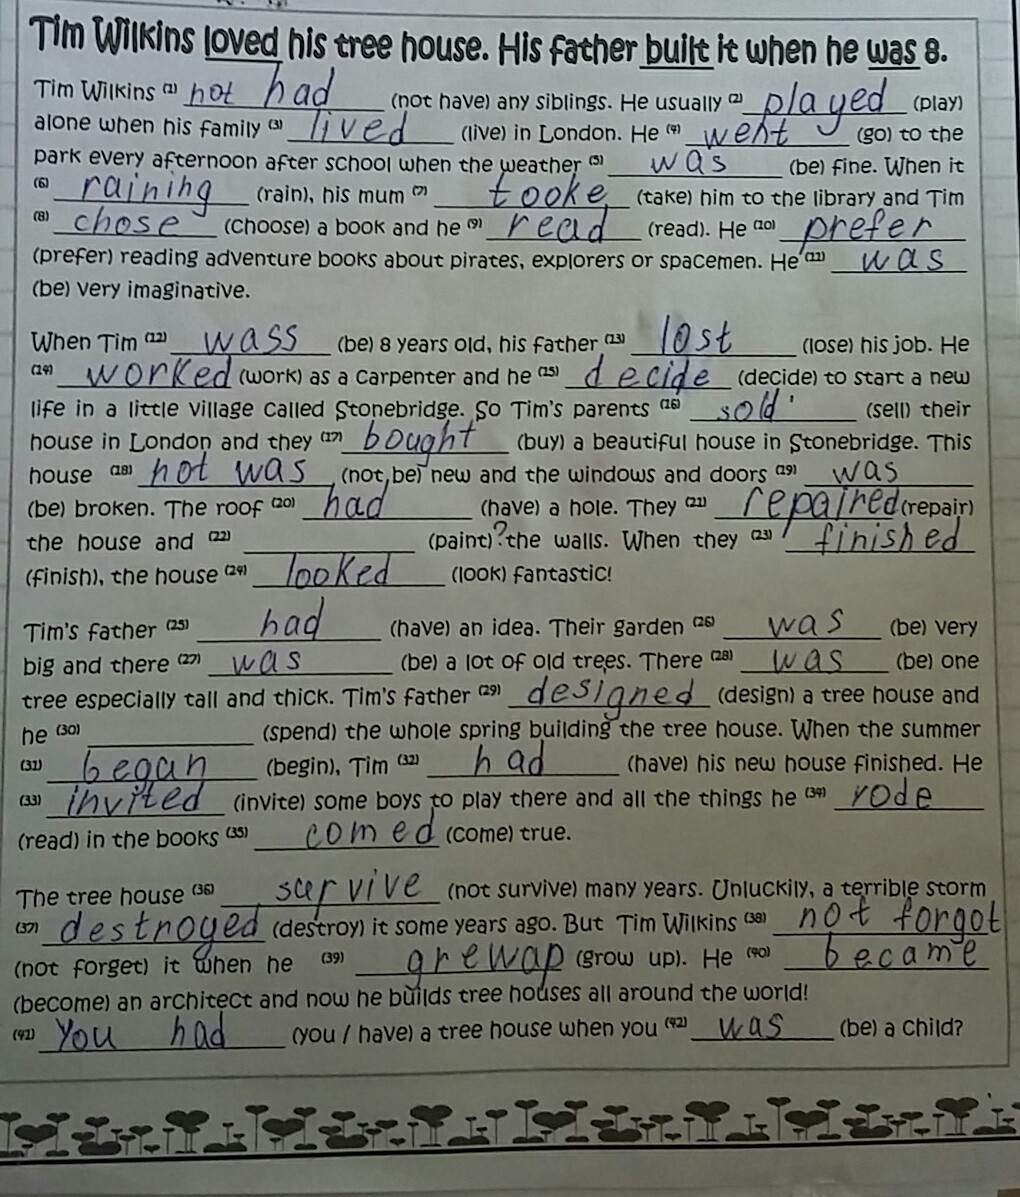 Tim Wilkins loved his tree house. His father built it when he was 8.
Tim Wilkins (1) not had (not have) any siblings. He usually (2) played (play)
alone when his family (3) lived (live) in London. He (4) went (go) to the
park every afternoon after school when the weather (5) was (be) fine. When it
(6) raining (rain), his mum (7) tooke (take) him to the library and Tim
(8) chose (choose) a book and he (9) read (read). He (10) prefer
(prefer) reading adventure books about pirates, explorers or spacemen. He (11) was
(be) very imaginative.
When Tim (12) wass (be) 8 years old, his father (13) lost (lose) his job. He
(14) worked (work) as a carpenter and he (15) decide (decide) to start a new
life in a little village called Stonebridge. So Tim's parents (16) sold (sell) their
house in London and they (17) bought (buy) a beautiful house in Stonebridge. This
house (18) not was (not be) new and the windows and doors (19) was
(be) broken. The roof (20) had (have) a hole. They (21) repaired (repair)
the house and (22) ____ (paint) ? the walls. When they (23) finished
(finish), the house (24) looked (look) fantastic!
Tim's father (25) had (have) an idea. Their garden (26) was (be) very
big and there (27) was (be) a lot of old trees. There (28) was (be) one
tree especially tall and thick. Tim's father (29) designed (design) a tree house and
he (30) ____ (spend) the whole spring building the tree house. When the summer
(31) began (begin), Tim (32) had (have) his new house finished. He
(33) invited (invite) some boys to play there and all the things he (34) rode
(read) in the books (35) comed (come) true.
The tree house (36) survive (not survive) many years. Unluckily, a terrible storm
(37) destroyed (destroy) it some years ago. But Tim Wilkins (38) not forgot
(not forget) it when he (39) grewap (grow up). He (40) became
(become) an architect and now he builds tree houses all around the world!
(41) You had (you / have) a tree house when you (42) was (be) a child?